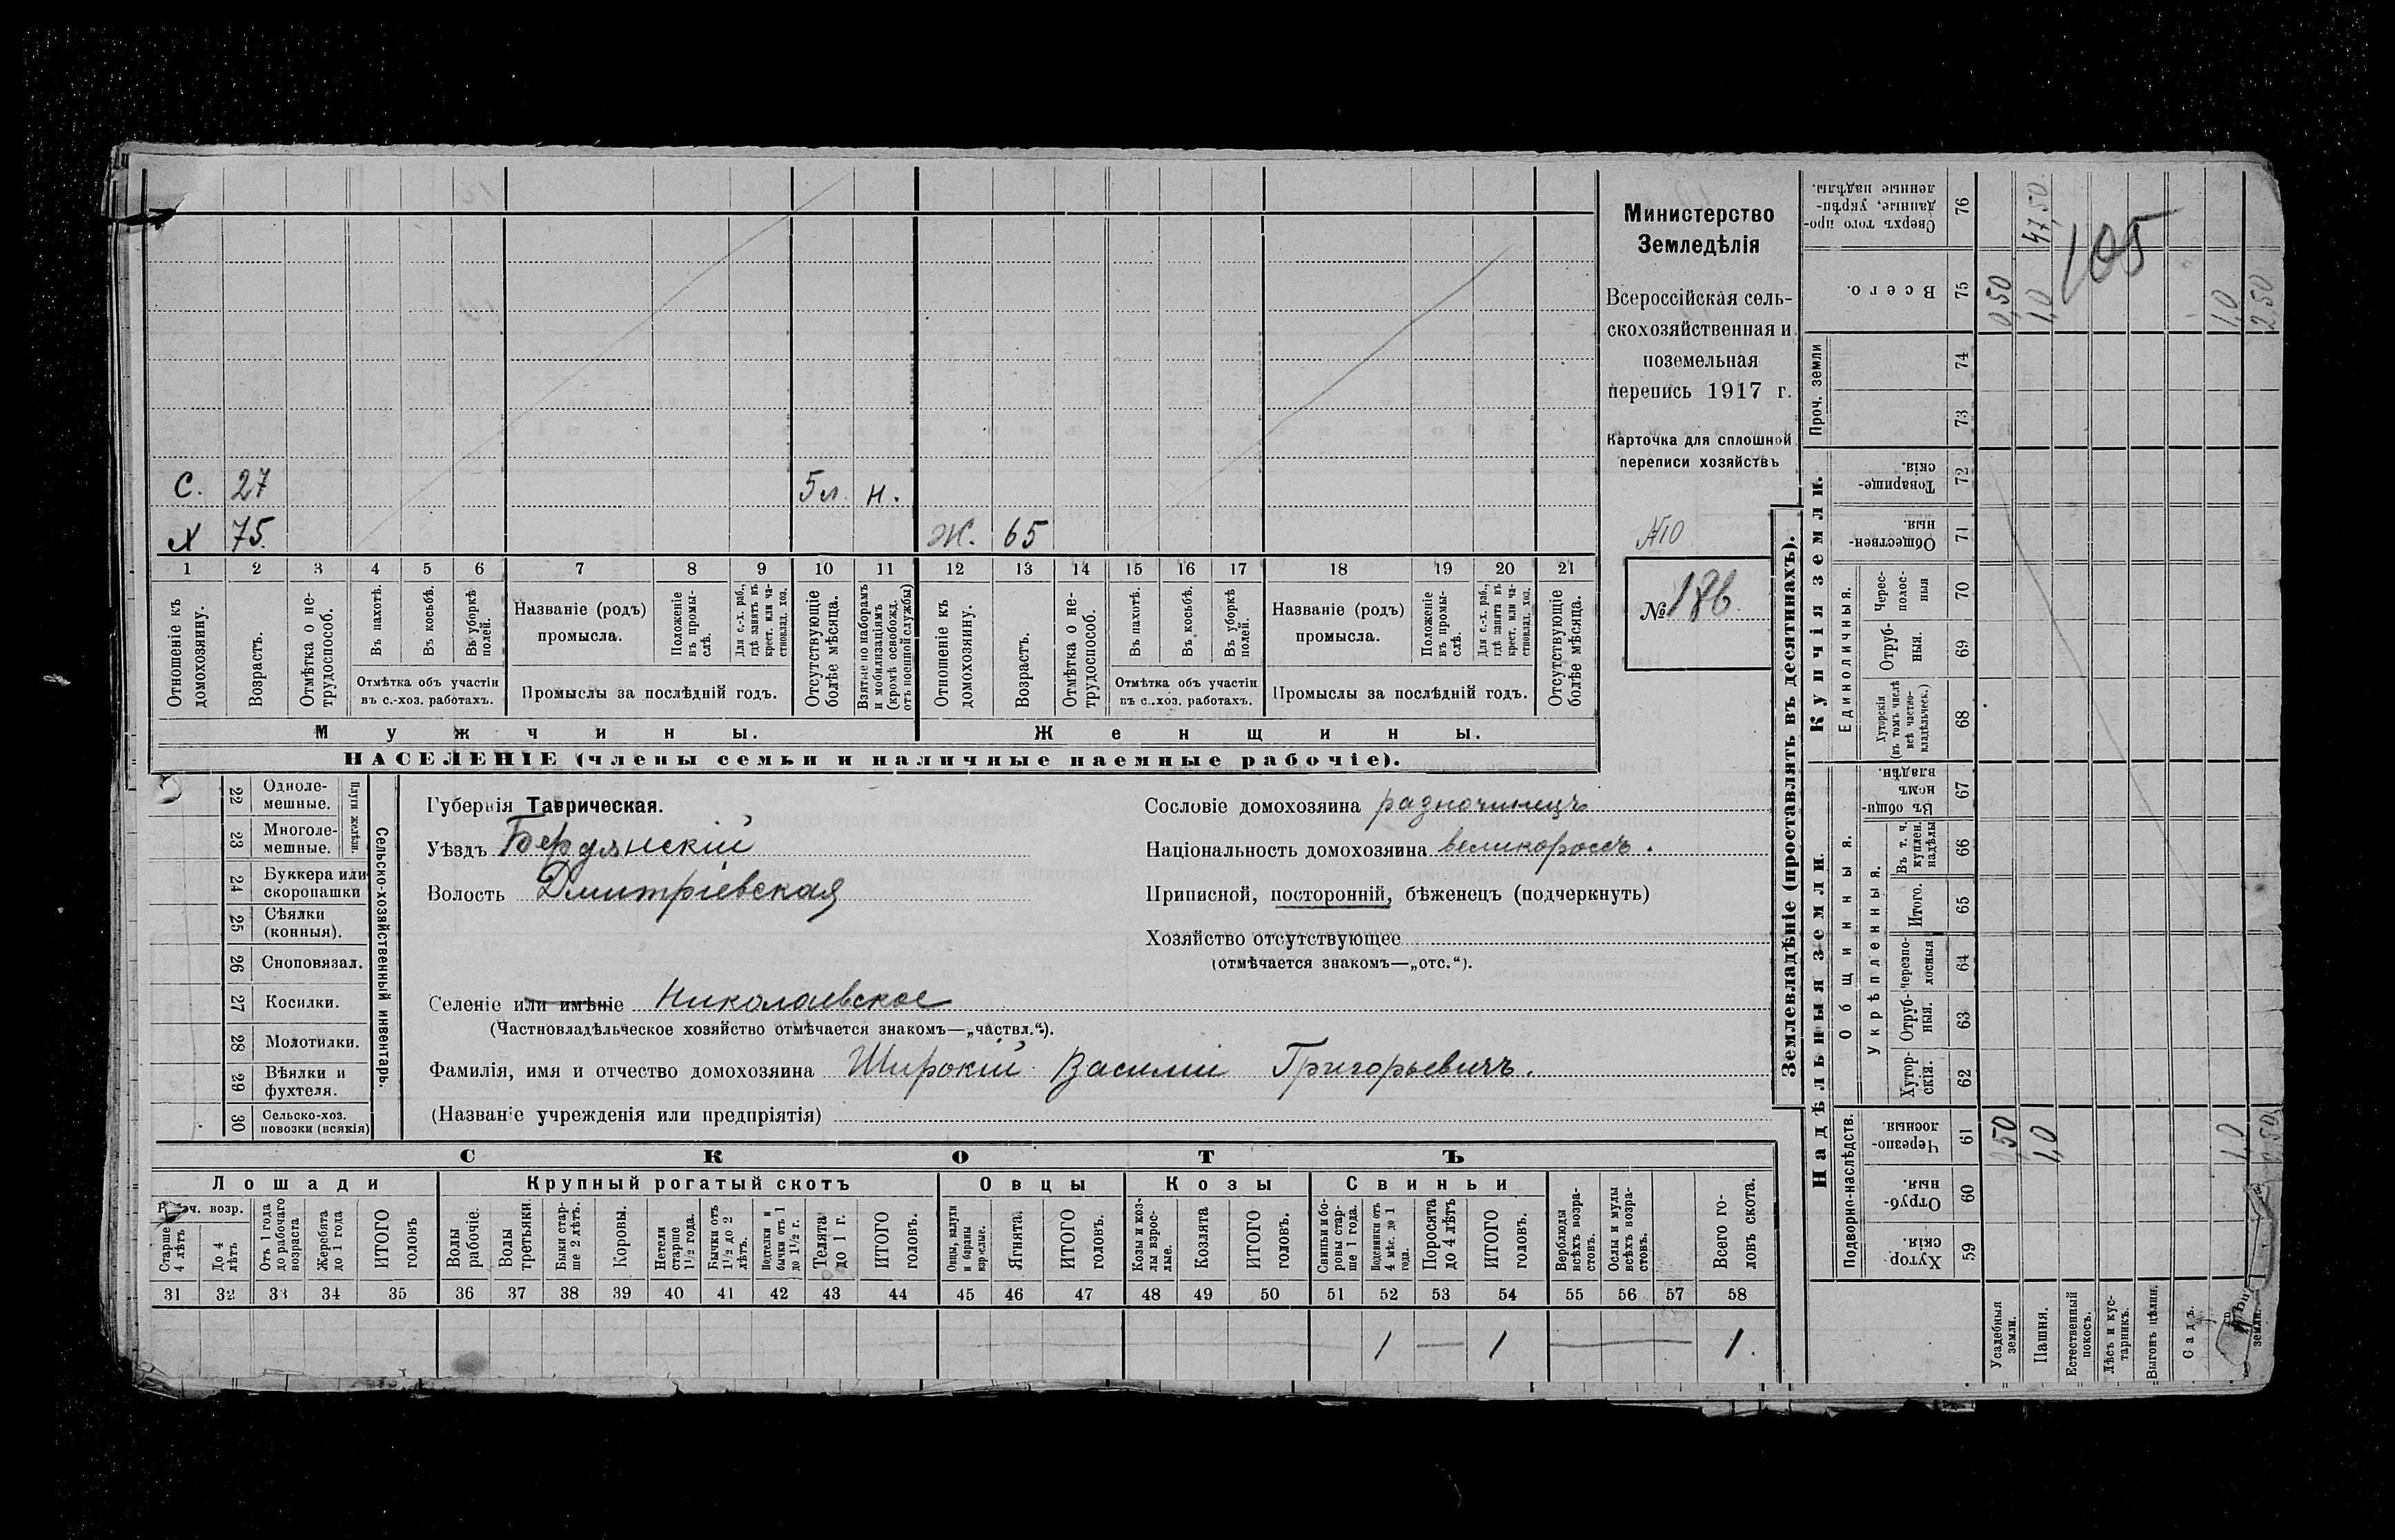 С. 27 5 л. н.
Х 75. Ж. 65
1 2 3 4 5 6 7 8 9 10 11 12 13 14 15 16 17 18 19 20 21
Отношеніе къ домохозяину.
Возрастъ.
Отмѣтка о не-трудоспособ.
Въ пахотѣ.
Въ косьбѣ.
Въ уборкѣ полей.
Отмѣтка объ участіи
въ с.-хоз. работахъ.
Названіе (родъ)
промысла.
Положеніе въ промы-слѣ.
Для с.-х. раб., гдѣ занятъ въ крест. или ча-стновлад. хоз.
Промыслы за послѣдній годъ.
Отсутствующіе болѣе мѣсяца.
Взятые по наборамъ и мобилизаціямъ (кромѣ освобожд. отъ военной службы)
Отношеніе къ домохозяину.
Возрастъ.
Отмѣтка о не-трудоспособ.
Въ пахотѣ.
Въ косьбѣ.
Въ уборкѣ полей.
Отмѣтка объ участіи
въ с.-хоз. работахъ.
Названіе (родъ)
промысла.
Положеніе въ промы-слѣ.
Для с.-х. раб., гдѣ занята въ крест. или ча-стновлад. хоз.
Промыслы за послѣдній годъ.
Отсутствующіе болѣе мѣсяца.
Мужчины. Женщины.
НАСЕЛЕНІЕ (члены семьи и наличные наемные рабочіе).
Министерство
Земледѣлія
Всероссійская сель-
скохозяйственная и
поземельная
перепись 1917 г.
Карточка для сплошной
переписи хозяйствъ
№ 186
22 Одноле-
мешные.
23 Многоле-
мешные.
Плуги желѣзн.
24 Буккера или
скоропашки
25 Сѣялки
(конныя).
26 Сноповязал.
27 Косилки.
28 Молотилки.
29 Вѣялки и
фухтеля.
30 Сельско-хоз.
повозки (всякія)
Сельско-хозяйственный инвентарь.
Губернія Таврическая.
Уѣздъ Бердянскій
Волость Дмитріевская
Селеніе или имѣніе Николаевское
(Частновладѣльческое хозяйство отмѣчается знакомъ—„частвл.“).
Фамилія, имя и отчество домохозяина Широкій Василій Григорьевичъ.
(Названіе учрежденія или предпріятія)
Сословіе домохозяина разночинецъ
Національность домохозяина великороссъ.
Приписной, посторонній, бѣженецъ (подчеркнуть)
Хозяйство отсутствующее
(отмѣчается знакомъ—„отс.“).
СКОТЪ
Лошади Крупный рогатый скотъ Овцы Козы Свиньи
Старше 4 лѣтъ
До 4 лѣтъ
Отъ 1 года до рабочаго возраста
Жеребята до 1 года
ИТОГО головъ
Волы рабочіе.
Волы третьяки.
Быки стар-ше 2 лѣтъ.
Коровы.
Нетели старше 1 1/2 года.
Бычки отъ 1 1/2 до 2 лѣтъ.
Подтелки и бычки отъ 1 до 1 1/2 г.
Телята до 1 г.
ИТОГО головъ.
Овцы, валухи и бараны взрослые.
Ягнята.
ИТОГО головъ.
Козы и коз-лы взрос-лые.
Козлята
ИТОГО головъ.
Свиньи и бо-ровы стар-ше 1 года.
Подсвинки отъ 4 мѣс. до 1 года.
Поросята до 4 лѣтъ
ИТОГО головъ.
Верблюды всѣхъ возра-стовъ.
Ослы и мулы всѣхъ возра-стовъ.
Всего го-ловъ скота.
31 32 33 34 35 36 37 38 39 40 41 42 43 44 45 46 47 48 49 50 51 52 53 54 55 56 57 58
1 — 1 — 1.
Землевладѣніе (проставлять въ десятинахъ).
Купчія земли.
Надѣльныя земли.
Сверхъ того про-данные, укрѣп-ленные надѣлы. 76
Всего. 75
Проч. земли 74 73
Товарище-скія. 72
Обществен-ныя. 71
Единоличныя.
Черес-полос-ныя 70
Отруб-ныя. 69
Хуторскія (въ томъ числѣ всѣ частно-владѣльческ.) 68
Общинныя.
Въ общи-номъ владѣн. 67
Укрѣпленныя.
Въ т. ч. куплен. надѣлы 66
Итого. 65
Черезпо-лосныя 64
Отруб-ныя. 63
Хутор-скія. 62
Подворно-наслѣдств.
Черезпо-лосныя. 61
Отруб-ныя. 60
Хутор-скія. 59
Усадебныя земли.
Пашня.
Естественный покосъ.
Лѣсъ и кус-тарникъ.
Выгонъ цѣлин.
Садъ.
земли.
0,50
1,0
47,50
105
1,0
2,50
50
1,0
1,0